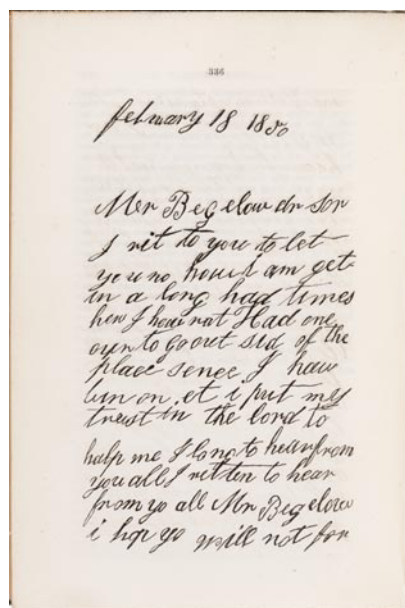 336
february 18 1850
Mer Begelow dr Sor
I rit to you to let
you no how i am get
in a long had times
her I have not Had one
ouer to go out sid of the
place senec I haw
bin on et i put my
trust in the lord to
halp me I long to hear from
you all I ritten to hear
from yo all Mr Begelow
i hop yo will not for